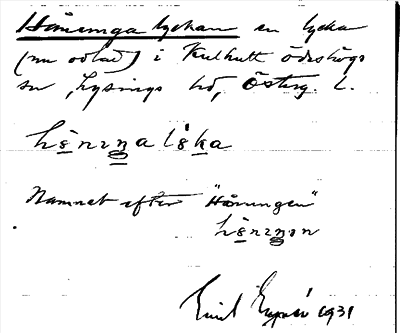 Håninga lyckan en lycka
(nu odlad) i Kulhult Ödeshögs
sn, Lysings hd, Österg. L.
håniŋa lẙka
Namnet efter "Håningen"
håniŋən
Emil 1931